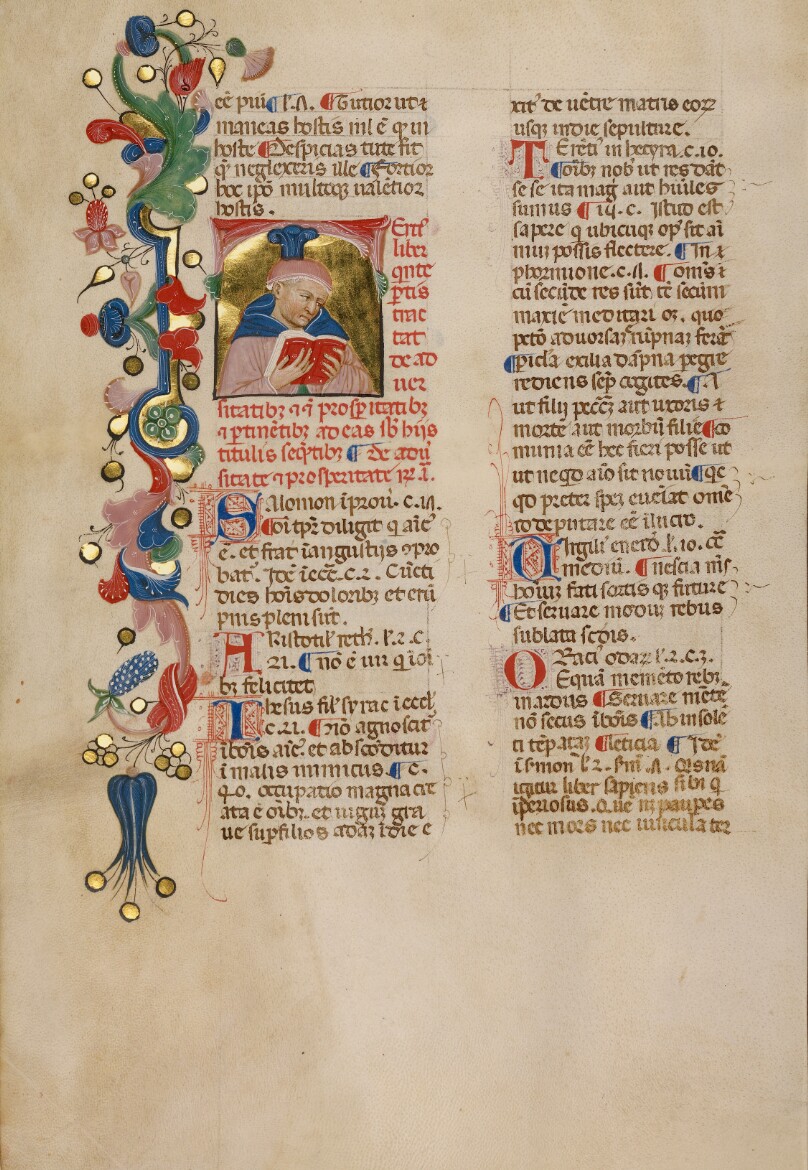 cẽ pui ¶ l̃.A. ¶ Tutior ut ꝛ
maneas hostis nil ẽ qͣ in
hoste ¶ Despicias tute sit
qͣ neglexeris ille ¶ Fortior
hoc ipõ multoqꝫ ualẽtior
hostis.
liber
qnte
ꝑtis
trac
tat
de ad
uer
sitatibꝫ ꝛ ĩ prosꝑitatibꝫ
ꝛ ꝑtinẽtibꝫ ad eas sb̃ hijs
titulis seq̃tibꝫ ¶ De adũ
sitate ꝛ prosperitate
Salomon ĩ prou. c.
¶ Oĩ tpr̃ diligit q aĩc
ẽ. et frat̃ ĩ angustijs ꝯpro
bat̃. Idẽ ĩ ecc̃. c. 2. Cũcti
dies hoĩs doloribꝫ et erũ
pnis pleni sũt.
Aristotil̃ reth. l̃. 2. c.
21. ¶ nõ ẽ uir q ĩ oĩ
bꝫ felicitet
Ihesus fil̃ syrac ĩ eccl̃.
c. 12. ¶ Nõ agnoscit̃
ĩ bõis aĩc̃ et abscõditur
ĩ malis inimicus. ¶ c.
40. occupatio magna cre
ata ẽ oĩbꝫ. et iugũ gra
ue sup filios adaꝫ ĩ die e
xit̃ de uẽtre matris eoꝝ
usqꝫ in die sepulture.
Terẽti in hecyra. c. 10.
¶ Oĩbꝫ nob̃ ut res dãt
se se ita mag̃ aut hũiles
sumus ¶ iq̃. c. Istud est
sapere q ubicũqꝫ opꝰ sit aĩ
mũ possis flectere. ¶ In ꝛ
phormione. c. A. ¶ Om̃s ĩ
cũ secũde res sũt tẽ secum
maxiẽ meditari oꝫ. quo
pcto aduorsaꝫ erũpnaꝫ ferãt
¶ Picla exilia dãpna pegre
rediens semꝑ cogites. ¶ A
ut filij pecc̃ aut uxoris ꝛ
mortẽ aut morbũ filie ¶ co
munia cẽ hec fieri posse ut
ut ne qd aĩo sit nouũ ¶ qc
qd preter speꝫ eueĩat omẽ
id deputare cẽ ĩ lucro.
Uirgili enerd. l̃. 10. cẽ
mediũ. ¶ Nescia m̃s
hoĩuꝫ fati sortis qꝫ future
¶ Et seruare modũ rebus
sublata scd̃is.
Oraci odaꝝ l̃. 2. c. 3.
Equã memẽto rebꝫ
in arduis ¶ Seruare mẽtẽ
nõ secus ĩ bõis ¶ Ab insolẽ
ti tẽpataꝫ ¶ Leticia ¶ Idẽ
ĩ s̃mon̄ l̃. 2. Qisnã
igitur liber sapiens sibi q
ĩperiosus. Quẽ nꝫ paupes
nec mors nec uincula ter